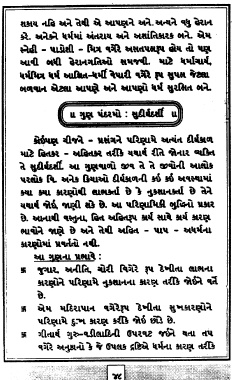 શકાય નહિ અને તેથી એ આપણને અને અન્યને વધુ હેરાન
કરે. અનેકને ધર્મમાં અંતરાય અને અશાંતિકારક બને. એમ
સ્નેહી - પાડોશી - મિત્ર વગેરે અસત્પક્ષરૂપ હોય તો પણ
આવી બધી હેરાનગતિઓ સમજવી. માટે ધર્માચાર્ય,
ધર્મમિત્ર ધર્મ આશ્રિત-ધર્મી વૈપારી વગેરે રૂપ સુપક્ષ જેટલા
બળવાન એટલા આપણે અને આપણો ધર્મ સુરક્ષિત બને.
॥ ગુણ પંદરમો : સુદીર્ઘદર્શી ॥
કોઈપણ ચીજને - પ્રસંગને પરિણામે અત્યંત દીર્ઘકાળ
માટે હિતકર - અહિતકર તરીકે યથાર્થ રીતે જોનાર વ્યક્તિ
તે સુદીર્ઘદર્શી. આ ગુણવાળો જીવ તે તે જીવોની આલોક
પરલોક વિ. અનેક ક્રિયાઓ દીર્ઘકાળની કઈ કઈ અવસ્થામાં
ક્યા ક્યા કારણોથી લાભકર્તા છે કે નુકશાનકર્તા છે તેને
યથાર્થ જોઈ જાણી શકે છે. આ પરિણામિકી બુદ્ધિનો પ્રકાર
છે. આનાથી વસ્તુના, હિત અહિતરૂપ કાર્ય સાથે કાર્ય કારણ
ભાવોને જાણે છે અને તેથી અહિત - પાપ - અધર્મના
કારણોમાં પ્રવર્તતો નથી.
આ ગુણના પ્રભાવે :
જુગાર, અનીતિ, ચોરી વિગેરે રૂપ દેખીતા લાભના
કારણોને પરિણામે નુકશાનના કારણ તરીકે જોઈને વર્તે
છે.
એમ મદિરાપાન વગેરેરૂપ દેખીતા સુખકારણોને
પરિણામે દુઃખ કારણ તરીકે જોઈ છોડે છે.
ગીતાર્થ ગુરુ-વડીલાદિની ઉપરવટ જઈને થતા તપ
વગેરે અનુષ્ઠાનો કે જે ઉપલક દૃષ્ટિએ ધર્મના કારણ તરીકે
૪૮